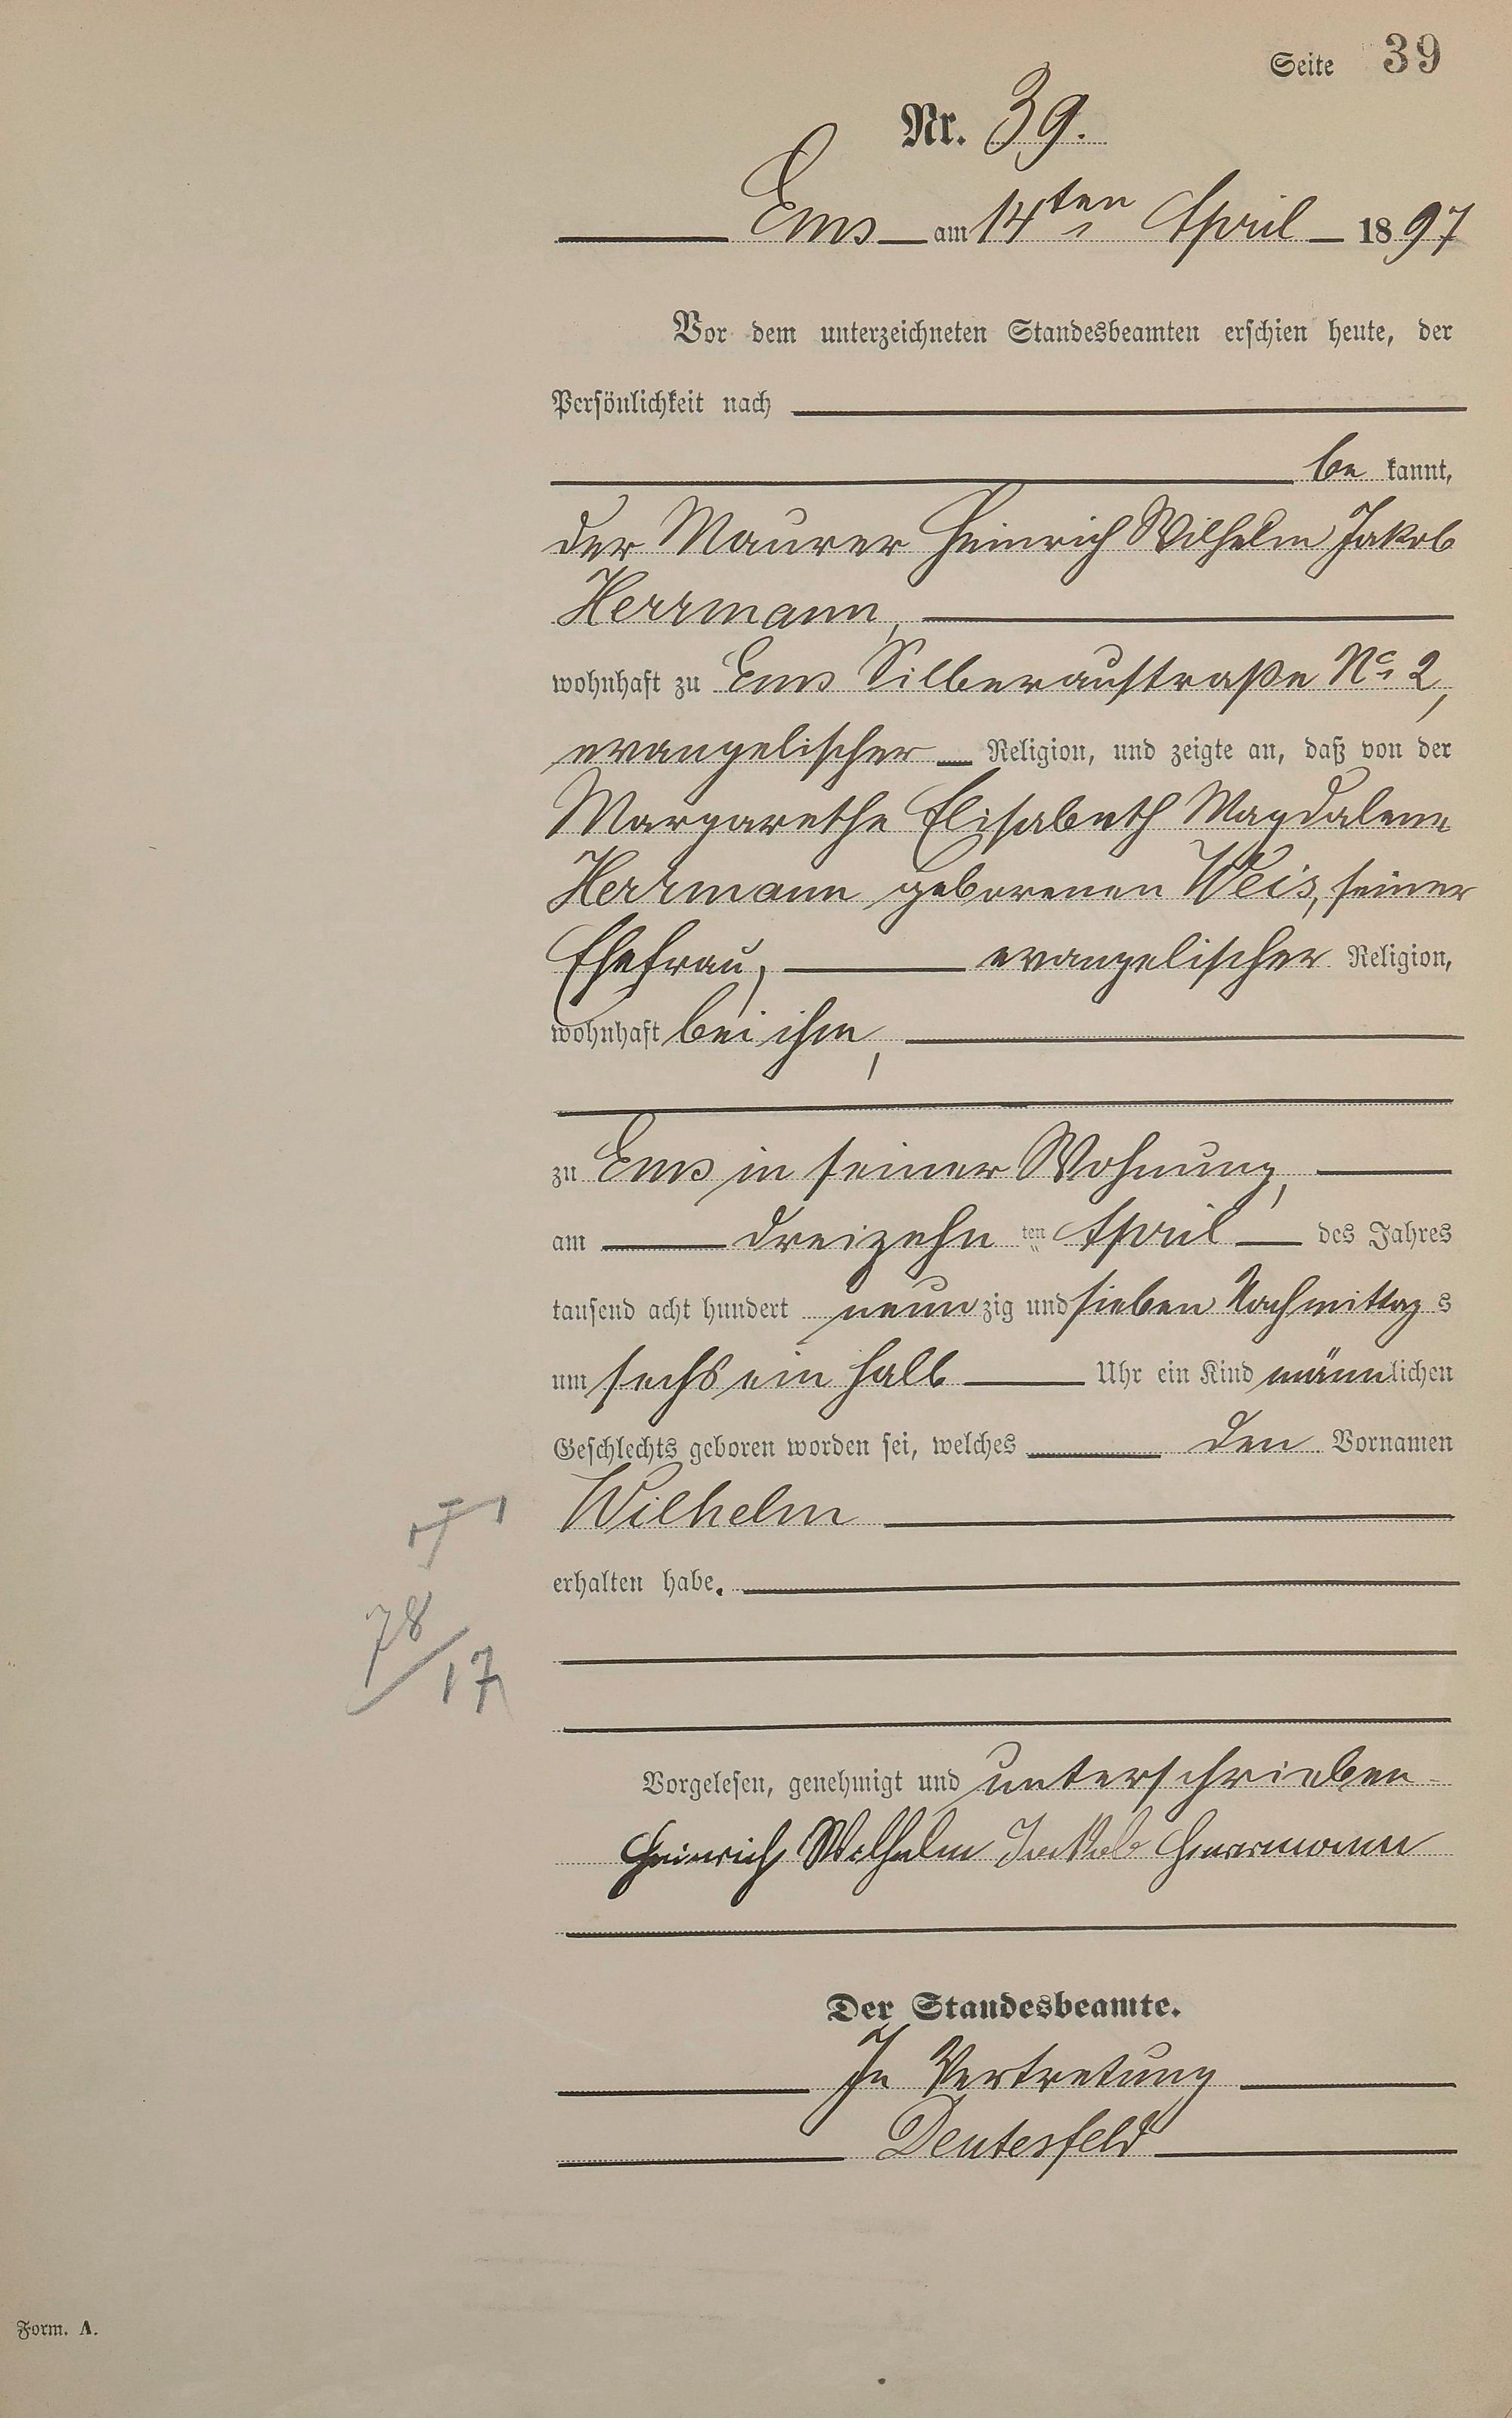 Seite 39
Nr. 39.
Ems am 14ten April 1897
Vor dem unterzeichneten Standesbeamten erschien heute, der
Persönlichkeit nach
be kannt,
der Maurer Heinrich Wilhelm Jakob
Herrmann,
wohnhaft zu Ems Silberaustraße No 2,
evangelischer Religion, und zeigte an, daß von der
Margarethe Elisabeth Magdalene
Herrmann geborenen Weis, seiner
Ehefrau, evangelischer Religion,
wohnhaft bei ihm,
zu Ems in seiner Wohnung,
am dreizehn ten April des Jahres
tausend acht hundert neun zig und sieben Nachmittag s
um sechs ein halb Uhr ein Kind männlichen
Geschlechts geboren worden sei, welches den Vornamen
Wilhelm
erhalten habe.
78/17
Vorgelesen, genehmigt und unterschrieben
Heinrich Wilhelm Jackob Herrmann
Der Standesbeamte.
In Vertretung
Deutesfeld
Form. A.